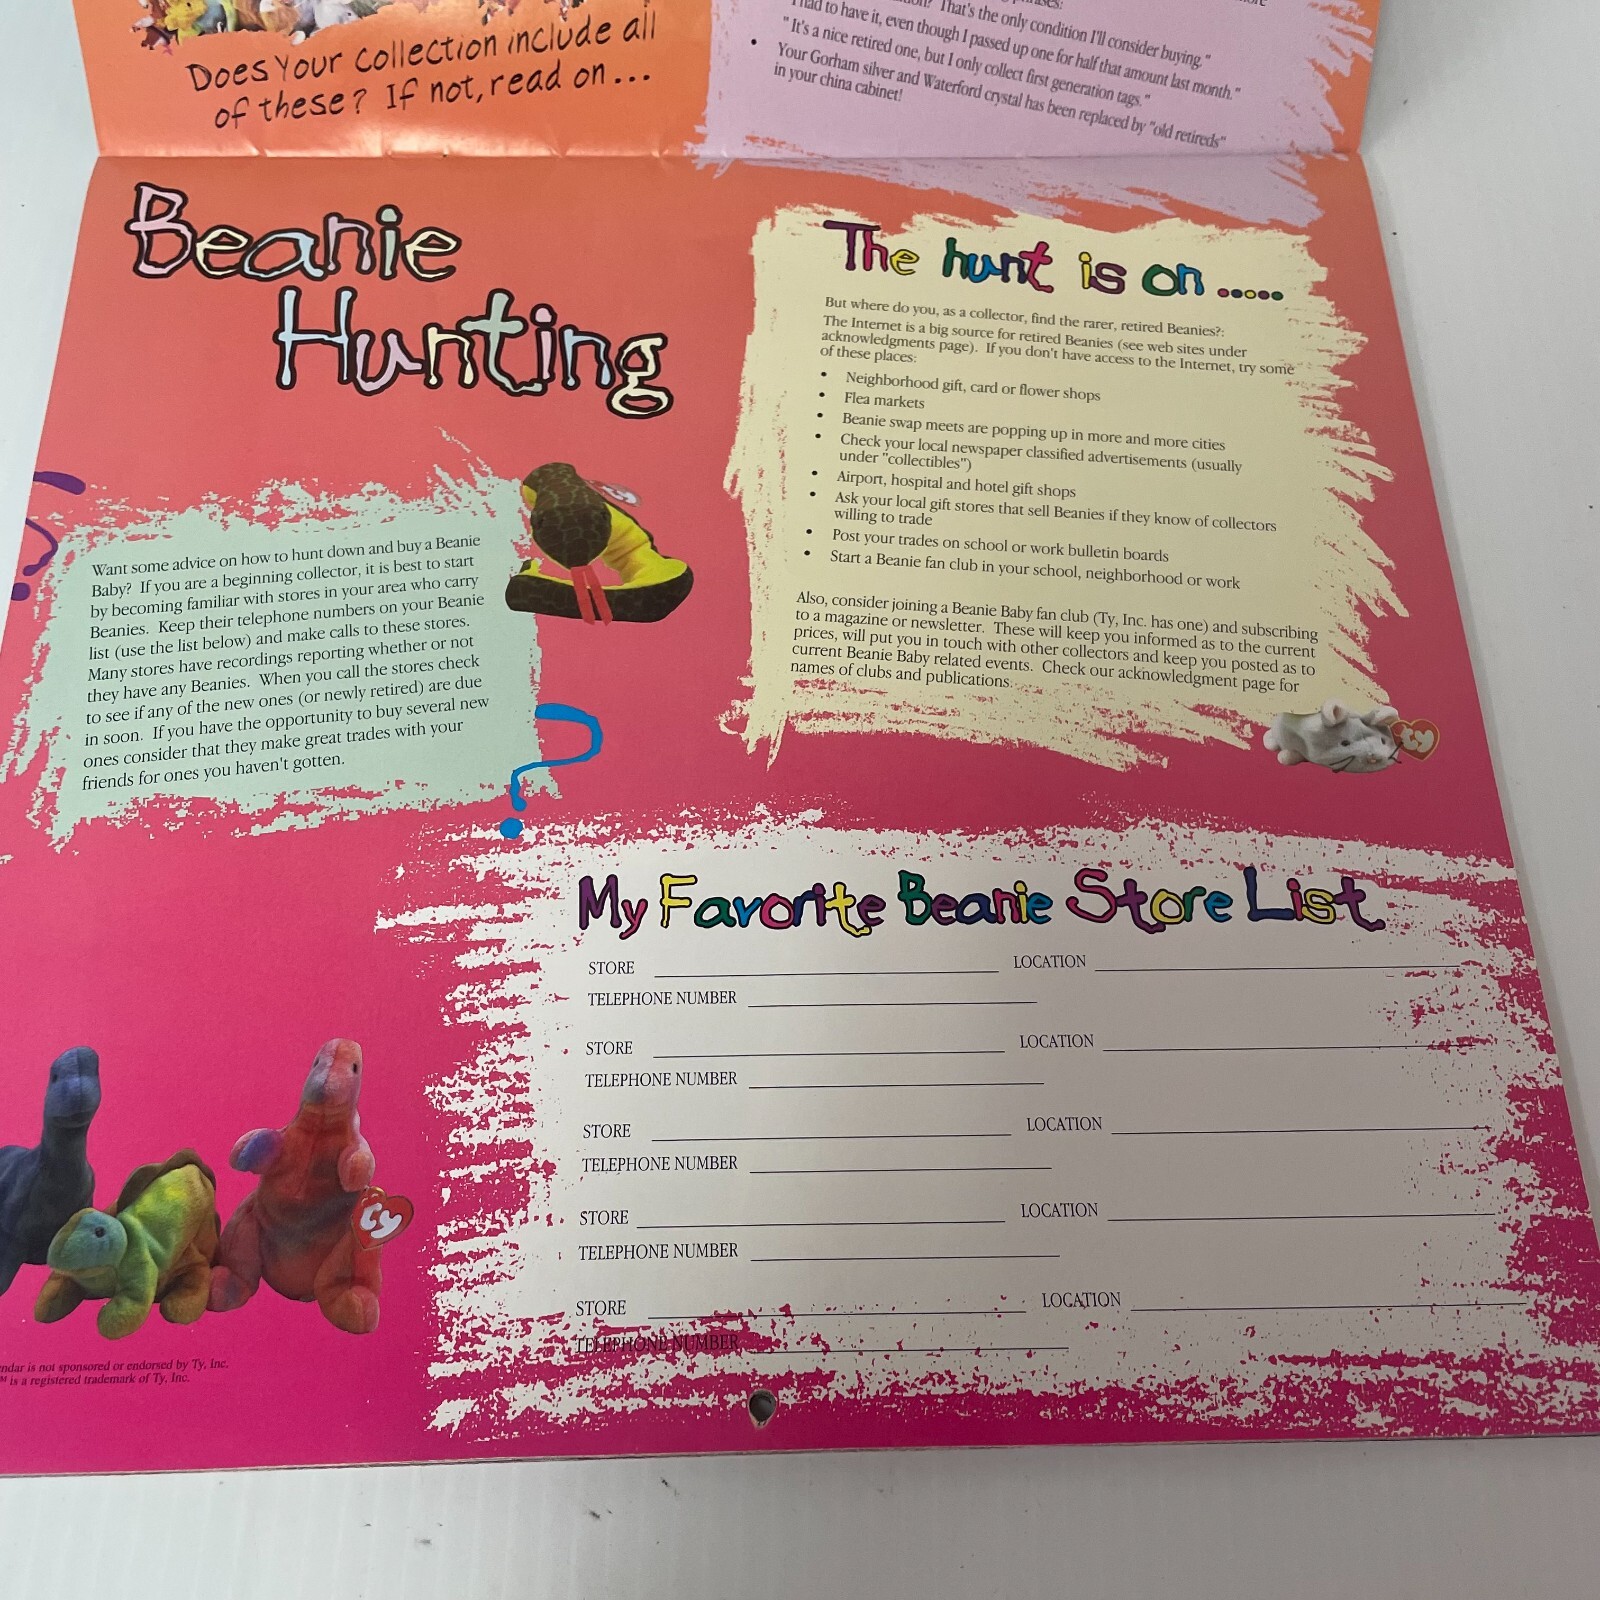 Does Your collection include all
of these? If not, read on...
That's the only condition I'll consider buying."
had to have it, even though I passed up one for half that amount last month."
"It's a nice retired one, but I only collect first generation tags."
• Your Gorham silver and Waterford crystal has been replaced by "old retireds"
in your china cabinet!
Beanie
Hunting
Want some advice on how to hunt down and buy a Beanie
Baby? If you are a beginning collector, it is best to start
by becoming familiar with stores in your area who carry
Beanies. Keep their telephone numbers on your Beanie
list (use the list below) and make calls to these stores.
Many stores have recordings reporting whether or not
they have any Beanies. When you call the stores check
to see if any of the new ones (or newly retired) are due
in soon. If you have the opportunity to buy several new
ones consider that they make great trades with your
friends for ones you haven't gotten.
The hunt is on .....
But where do you, as a collector, find the rarer, retired Beanies?:
The Internet is a big source for retired Beanies (see web sites under
acknowledgments page). If you don't have access to the Internet, try some
of these places:
• Neighborhood gift, card or flower shops
• Flea markets
• Beanie swap meets are popping up in more and more cities
• Check your local newspaper classified advertisements (usually
under "collectibles")
• Airport, hospital and hotel gift shops
• Ask your local gift stores that sell Beanies if they know of collectors
willing to trade
• Post your trades on school or work bulletin boards
• Start a Beanie fan club in your school, neighborhood or work
Also, consider joining a Beanie Baby fan club (Ty, Inc. has one) and subscribing
to a magazine or newsletter. These will keep you informed as to the current
prices, will put you in touch with other collectors and keep you posted as to
current Beanie Baby related events. Check our acknowledgment page for
names of clubs and publications.
ty
?
My Favorite Beanie Store List
STORE LOCATION
TELEPHONE NUMBER
STORE LOCATION
TELEPHONE NUMBER
STORE LOCATION
TELEPHONE NUMBER
STORE LOCATION
TELEPHONE NUMBER
STORE LOCATION
TELEPHONE NUMBER
ty
ndar is not sponsored or endorsed by Ty, Inc.
™ is a registered trademark of Ty, Inc.